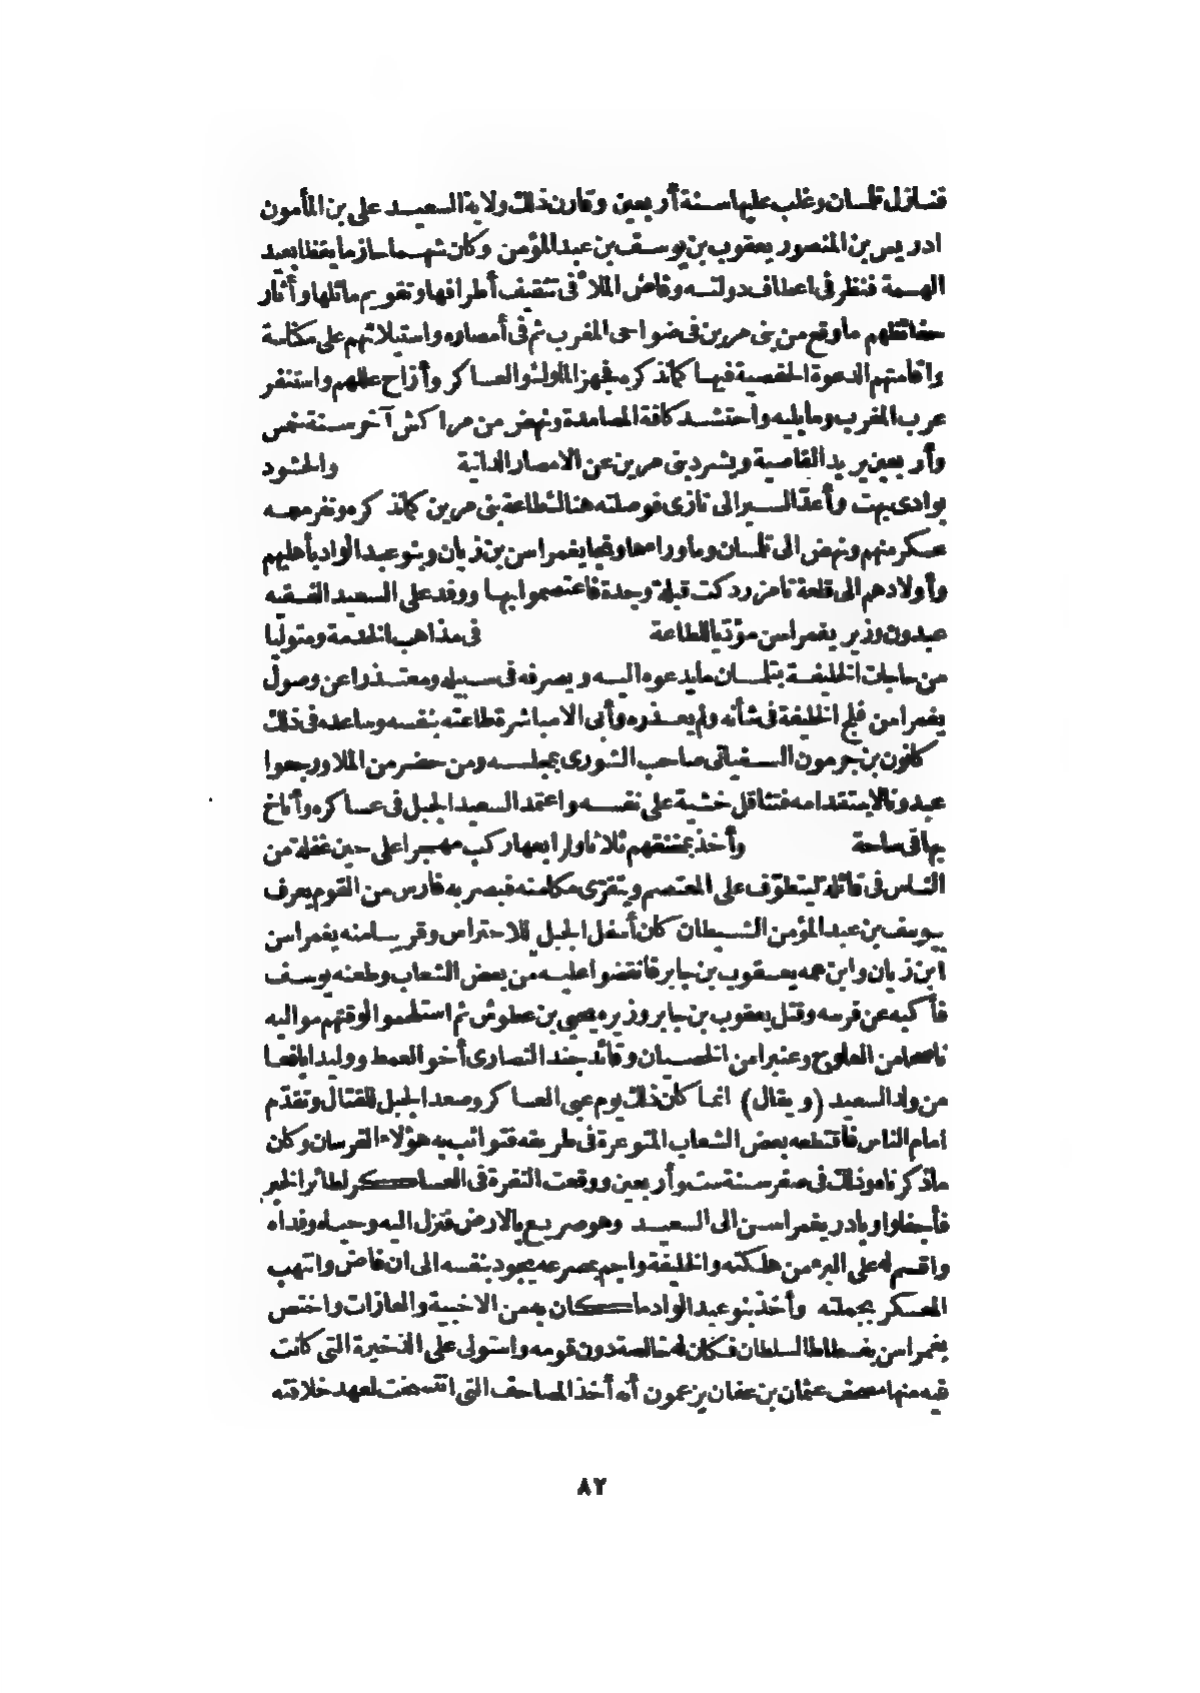 فنازل تلمسان وغلب عليها سنة أربعين وقارن ذلك ولاية السعيد على بن المأمون
ادريس بن المنصور يعقوب بن يوسف بن عبد المؤمن وكان شهما حازما يقظا بعيد
الهمة فنظر فى اعطاف دولته وفاض الملأ فى تثقيف أطرافها وتقويم مائلها وأثار
حفائظهم ما وقع من بنى مرين فى ضواحى المغرب ثم فى أمصاره واستيلائهم على مكناسة
واقامتهم الدعوة الحفصية فيها كما نذكره فجهز الملوك والعساكر وأزاح عللهم واستنفر
عرب المغرب وما يليه واحتشد كافة المصامدة ونهض من مراكش آخر سنة خمس
وأربعين يريد القاصية ويشرد بنى مرين عن الامصار الدانية والحشود
بوادى بهت وأغذ السير الى تازى فوصلته هنالك طاعة بنى مرين كما نذكره ونفر معه
عسكر منهم ونهض الى تلمسان وما وراءها ونجا يغمراسن بن زيان وبنو عبد الواد بأهليهم
وأولادهم الى قلعة تامزردكت قبلة وجدة فاعتصموا بها ووفد على السعيد الفقيه
عبدون وزير يغمراسن مؤديا للطاعة فى مذاهب الخدمة ومتوليا
من حاجات الخليفة بتلمسان ما يدعوه اليه ويصرفه فى سبيله ومعتذرا عن وصول
يغمراسن فلج الخليفة فى شأنه ولم يعذره وأبى الا مباشرة طاعته بنفسه وساعده فى ذلك
كانون بن جرمون السفيانى صاحب الشورى بمجلسه ومن حضر من الملا ورجعوا
عبدونا لاستقدامه فتثاقل خشية على نفسه واعتمد السعيد الجبل فى عساكره وأناخ
بها فى ساحة وأخذ بمخنقهم ثلاثا ولرابعها ركب مهجرا على حين غفلة من
الناس فى قائلة ليتطوف على المعتصم ويتقرى مكامنه فبصر به فارس من القوم يعرف
بيوسف بن عبد المؤمن الشيطان كان أسفل الجبل للاحتراس وقريبا منه يغمراسن
ابن زيان وابن عمه يعقوب بن جابر فانقضوا عليه من بعض الشعاب وطعنه يوسف
فأكبه عن فرسه وقتل يعقوب بن جابر وزيره يحيى بن عطوش ثم استلحموا لوقتهم مواليه
ناصحا من العلوج وعنبرا من الخصيان وقائد جند النصارى أخو العمط ووليدا يافعا
من ولد السعيد (ويقال) انما كان ذلك يوم عبى العساكر وصعد الجبل للقتال وتقدم
امام الناس فاقتطعه بعض الشعاب المتوعرة فى طريقه فتواثب به هؤلاء الفرسان وكان
ما ذكرناه وذلك فى صفر سنة ست وأربعين ووقعت النفرة فى العساكر لطائر الخبر
فأجفلوا وبادر يغمراسن الى السعيد وهو صريع بالارض فنزل اليه وحياه وفداه
واقسم له على البرء من هلكته والخليفة واجم بمصرعه يجود بنفسه الى ان فاض وانتهب
المعسكر بجملته وأخذ بنو عبد الواد ما كان به من الاخبية والفازات واختص
يغمراسن بفسطاط السلطان فكان له خالصة دون قومه واستولى على الذخيرة التى كانت
فيه منها مصحف عثمان بن عفان يزعمون أنه أحد المصاحف التى انتسخت لعهد خلافته
٨٢